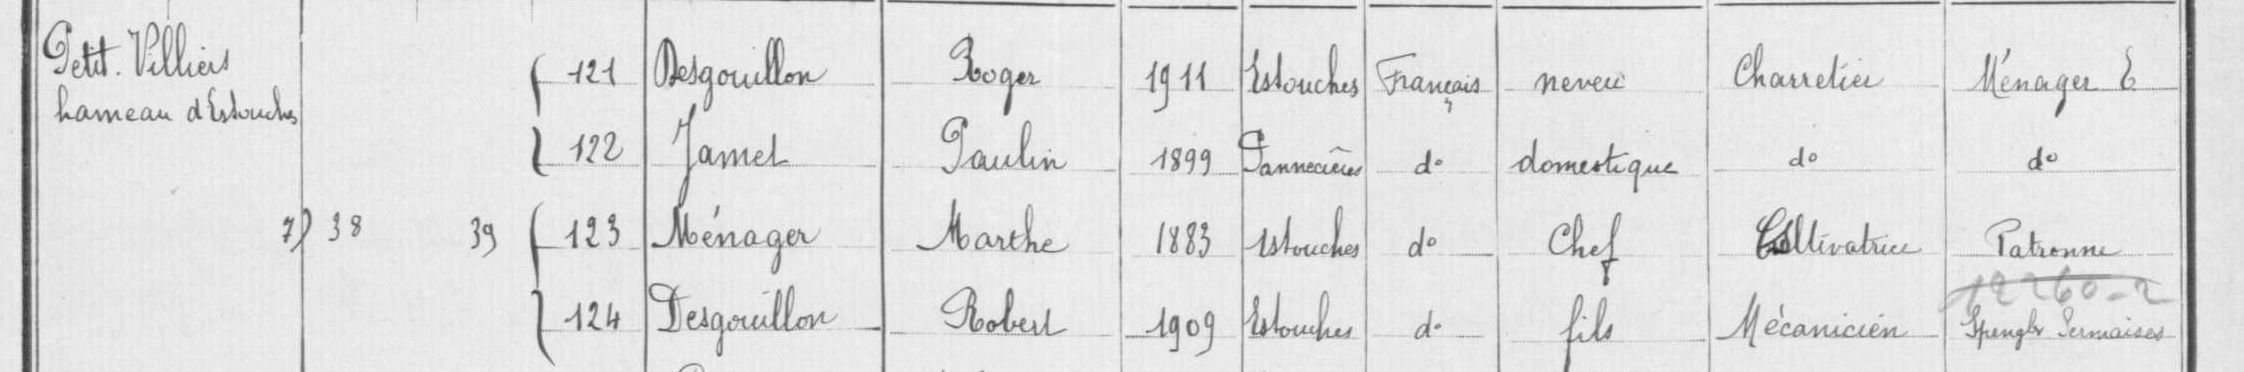 Petit. Villiers
hameau d'Estouches
121 Desgouillon Roger 1911 Estouches Français neveu Charretier Ménager E
122 Jamet Paulin 1899 Pannecières do domestique do do
7) 38 39 123 Ménager Marthe 1883 Estouches do Chef Cultivatrice Patronne
12260-2
124 Desgouillon Robert 1909 Estouches do fils Mécanicien Spengler Sermaises